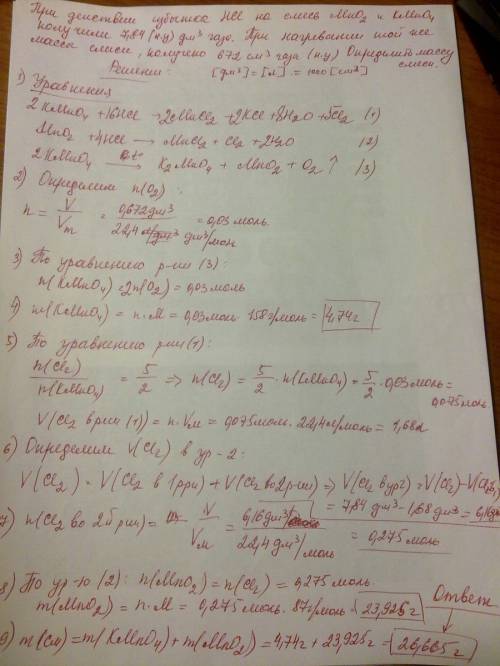 При действии избытка HCl на смесь MnO2 и KMnO4
получили 7,84 (н.у) дм³ газа. При нагревании той же
масса смеси, получено 672 см³ газа (н.у) Определить массу
смеси.
Решение: [дм³] = [л] = 1000 [см³]
1) Уравнения
2KMnO4 + 16HCl → 2MnCl2 + 2KCl + 8H2O + 5Cl2 (1)
MnO2 + 4HCl → MnCl2 + Cl2 + 2H2O (2)
2KMnO4 → K2MnO4 + MnO2 + O2 ↑ (3)
2) Определим n(O2):
n = V/Vm = 0,672 дм³/22,4 дм³/моль = 0,03 моль.
3) По уравнению р-ии (3):
n(KMnO4) = 2n(O2) = 0,03 моль
4) m(KMnO4) = n·M = 0,03 моль · 158 г/моль = 4,74 г
5) По уравнению р-ии (1):
n(Cl2)/n(KMnO4) = 5/2 ⇒ n(Cl2) = 5/2 · n(KMnO4) = 5/2 · 0,03 моль =
0,075 моль
V(Cl2 в р-ии (1)) = n·Vм = 0,075 моль · 22,4 л/моль = 1,68 л
6) Определим V(Cl2) в ур-2:
V(Cl2) = V(Cl2 в 1 р-ии) + V(Cl2 во 2 р-ии) ⇒ V(Cl2 в ур 2) = V(Cl2) - V(Cl2
= 7,84 дм³ - 1,68 дм³ =
7) n(Cl2 во 2й р-ии) = V/Vм = 6,16 дм³/22,4 дм³/моль = 0,275 моль
8) По ур-ю (2): n(MnO2) = n(Cl2) = 0,275 моль.
m(MnO2) = n·M = 0,275 моль · 87 г/моль = 23,925 г
Ответ
9) m(см) = m(KMnO4) + m(MnO2) = 4,74 г + 23,925 г = 28,665 г